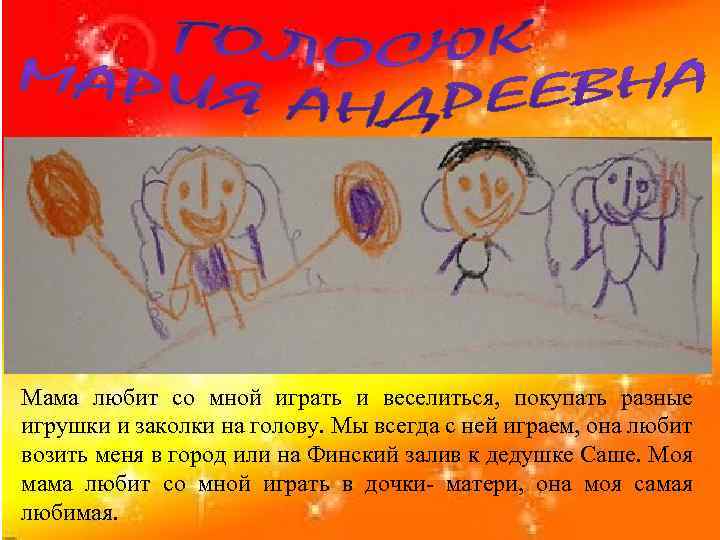 ГОЛОСЮК
МАРИЯ АНДРЕЕВНА
Мама любит со мной играть и веселиться, покупать разные
игрушки и заколки на голову. Мы всегда с ней играем, она любит
возить меня в город или на Финский залив к дедушке Саше. Моя
мама любит со мной играть в дочки- матери, она моя самая
любимая.